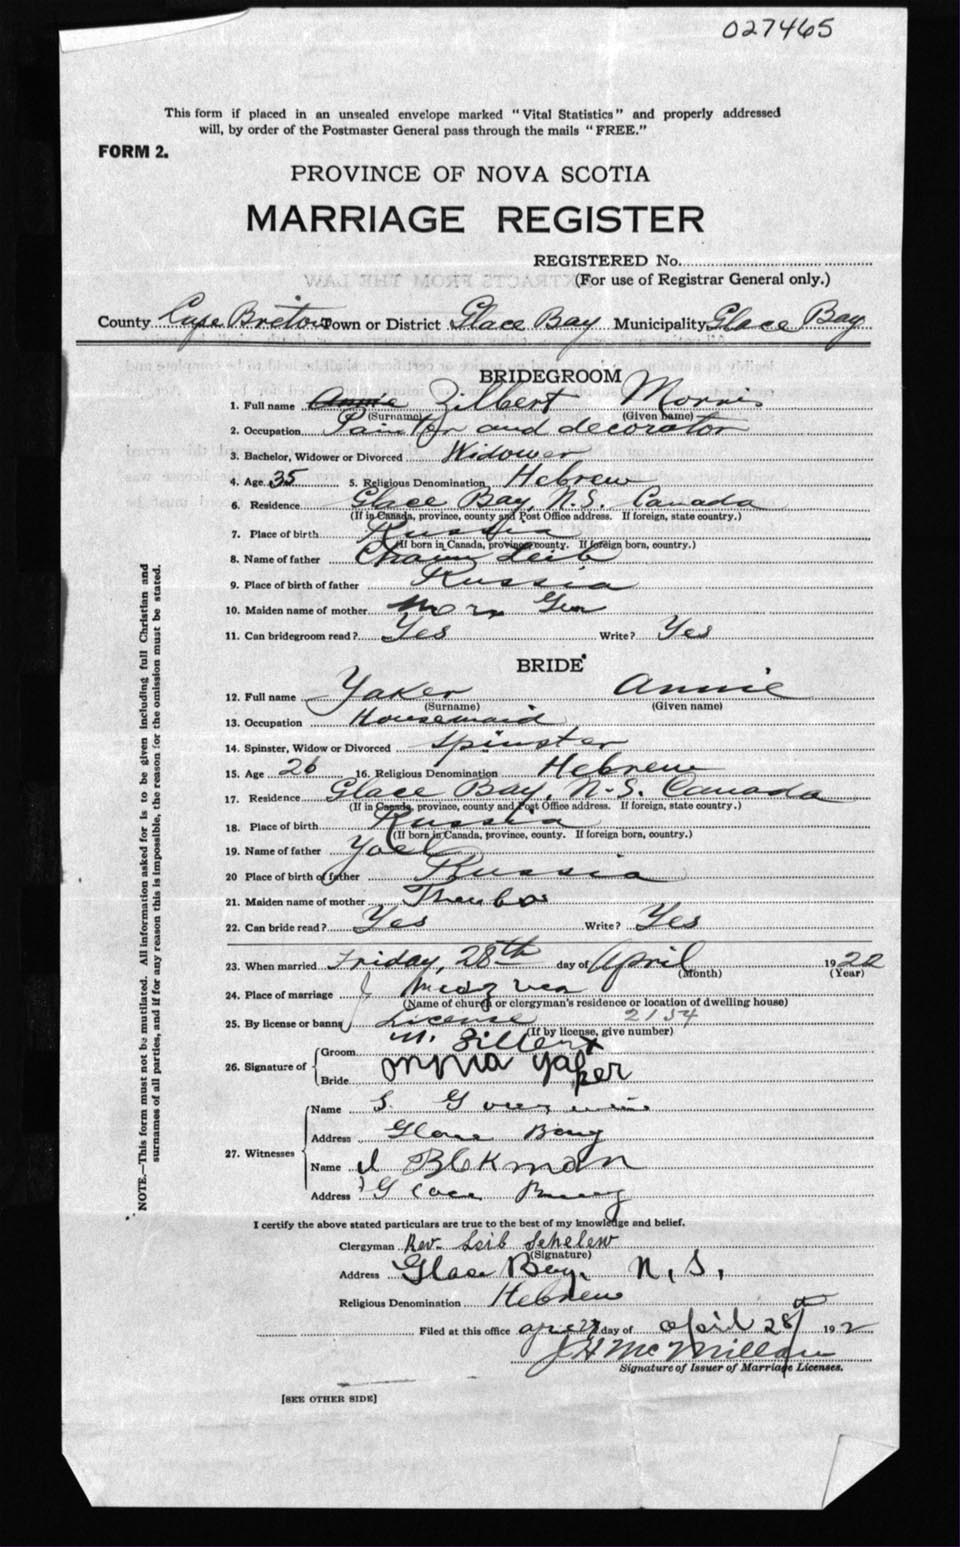 027465
This form if placed in an unsealed envelope marked "Vital Statistics" and properly addressed
will, by order of the Postmaster General pass through the mails "FREE."
FORM 2.
PROVINCE OF NOVA SCOTIA
MARRIAGE REGISTER
REGISTERED No.
(For use of Registrar General only.)
County Cape Breton Town or District Glace Bay Municipality Glace Bay
BRIDEGROOM
1. Full name Annie Zilbert Morris
(Surname) (Given name)
2. Occupation Painter and decorator
3. Bachelor, Widower or Divorced Widower
4. Age 35 5. Religious Denomination Hebrew
6. Residence Glace Bay, N.S. Canada
(If in Canada, province, county and Post Office address. If foreign, state country.)
7. Place of birth Russia
(If born in Canada, province, county. If foreign born, country.)
8. Name of father Chaim Leib
9. Place of birth of father Russia
10. Maiden name of mother
11. Can bridegroom read? Yes Write? Yes
BRIDE
12. Full name Yaker Annie
(Surname) (Given name)
13. Occupation Housemaid
14. Spinster, Widow or Divorced Spinster
15. Age 26 16. Religious Denomination Hebrew
17. Residence Glace Bay, N.S. Canada
(If in Canada, province, county and Post Office address. If foreign, state country.)
18. Place of birth Russia
(If born in Canada, province, county. If foreign born, country.)
19. Name of father Yoel
20 Place of birth of father Russia
21. Maiden name of mother
22. Can bride read? Yes Write? Yes
23. When married Friday, 28th day of April 1922
(Month) (Year)
24. Place of marriage
(Name of church or clergyman's residence or location of dwelling house)
25. By license or banns License 2134
(If by license, give number)
26. Signature of
Groom M. Zilbert
Bride Annia Yaker
27. Witnesses
Name S.
Address Glace Bay
Name
Address Glace Bay
I certify the above stated particulars are true to the best of my knowledge and belief.
Clergyman Rev. Leib Schelew
(Signature)
Address Glace Bay, N.S.
Religious Denomination Hebrew
Filed at this office day of april 28th 192
J H McMillan
Signature of Issuer of Marriage Licenses.
[SEE OTHER SIDE]
NOTE.—This form must not be mutilated. All information asked for is to be given including full Christian and
surnames of all parties, and if for any reason this is impossible, the reason for the omission must be stated.